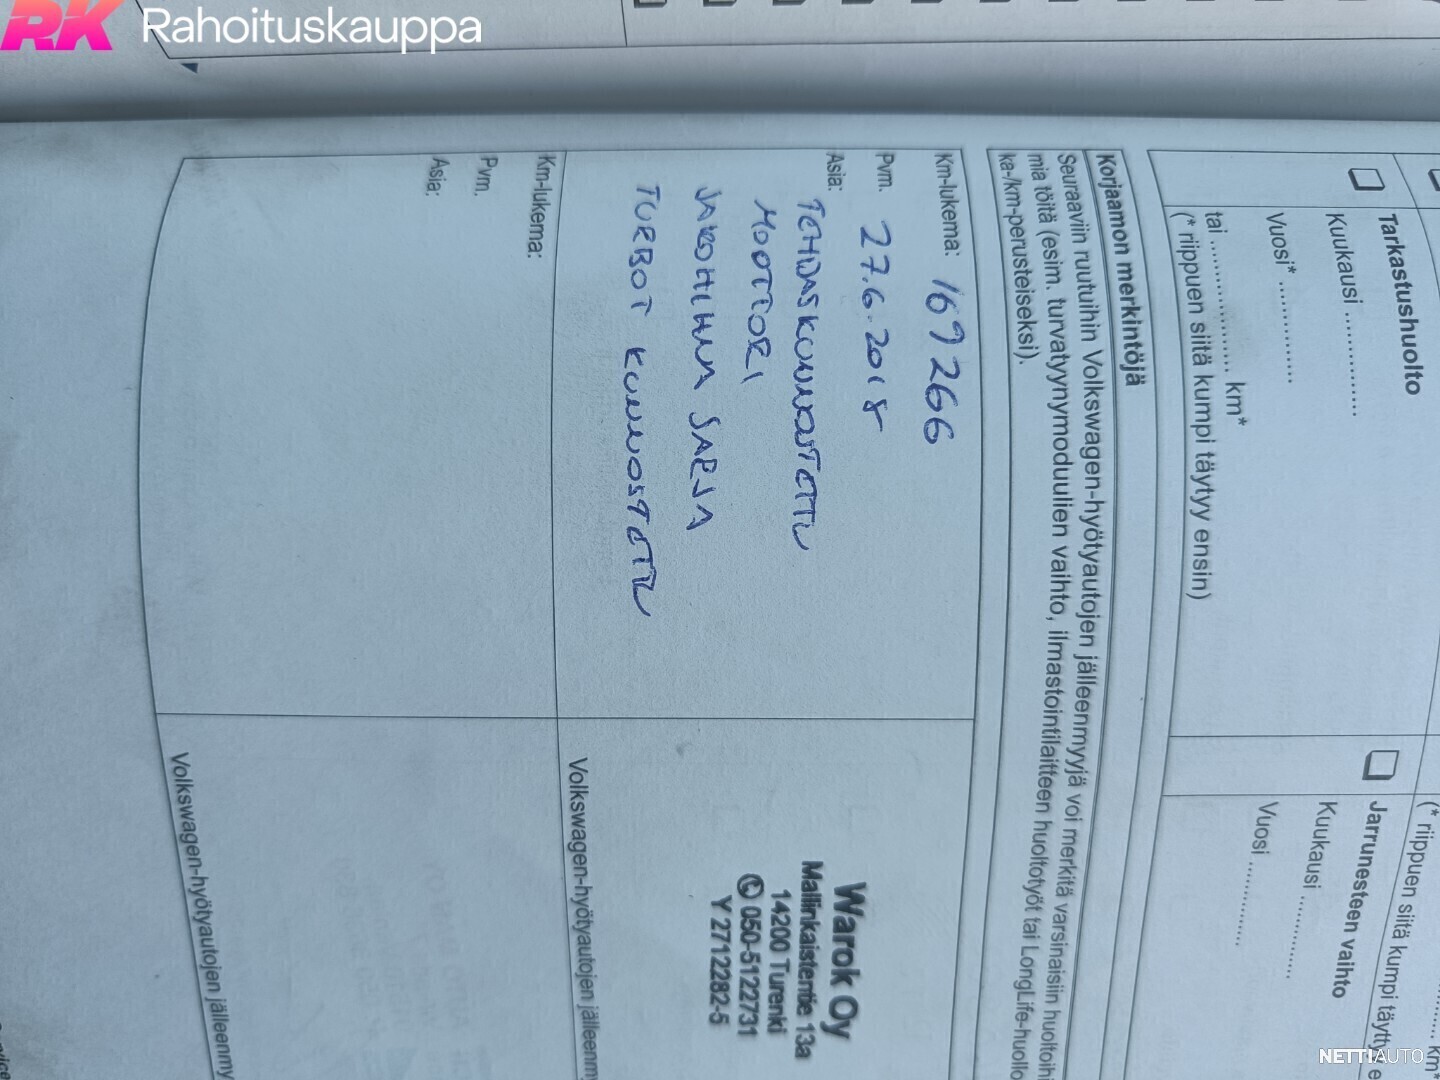 RK Rahoituskauppa
Tarkastushuolto
Kuukausi ................
Vuosi* ................
tai .................... km*
(* riippuen siitä kumpi täytyy ensin)
(* riippuen siitä kumpi täytyy e
Jarrunesteen vaihto
Kuukausi ............
Vuosi ............
Korjaamon merkintöjä
Seuraaviin ruutuihin Volkswagen-hyötyautojen jälleenmyyjä voi merkitä varsinaisiin huoltoihi
mia töitä (esim. turvatyynymoduulien vaihto, ilmastointilaitteen huoltotyöt tai LongLife-huollo
ka-/km-perusteiseksi).
Km-lukema: 169 266
Pvm. 27.6.2018
Asia: TEHDASKUNNOSTETTU
MOOTTORI
JAKOHIHNA SARJA
TURBOT KUNNOSTETTU
Warok Oy
Mallinkaistentie 13a
14200 Turenki
✆ 050-5122731
Y 2712282-5
Volkswagen-hyötyautojen jälleenmy
Km-lukema:
Pvm.
Asia:
Volkswagen-hyötyautojen jälleenmy
NETTIAUTO